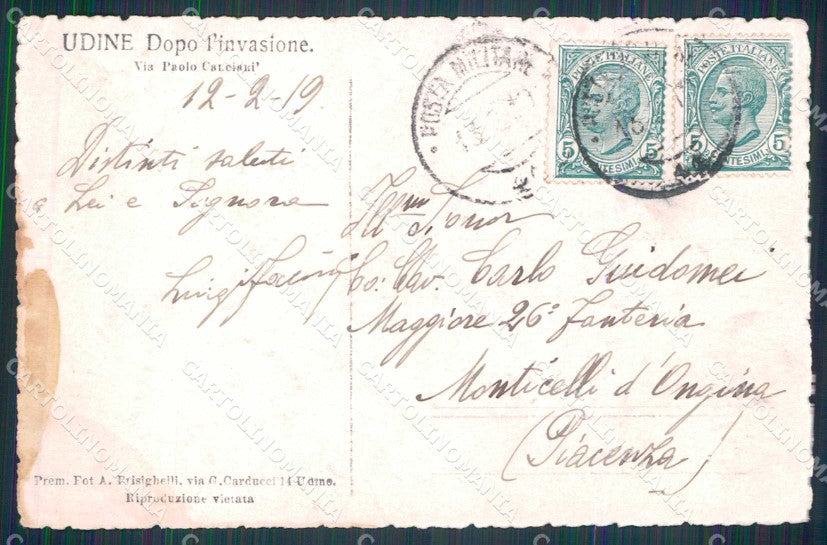 UDINE Dopo l'invasione.
Via Paolo Canciani
12-2-19.
Distinti saluti
a Lei e Signora
Luigi
Prem. Fot A. Brisighelli, via G. Carducci 14 Udine.
Riproduzione vietata
POSTA MILITARE
POSTE ITALIANE
5 CENTESIMI 5
POSTE ITALIANE
5 CENTESIMI 5
Ill.mo Signor
Cav. Carlo Guidomei
Maggiore 26° Fanteria
Monticelli d'Ongina
(Piacenza)
CARTOLINOMANIA